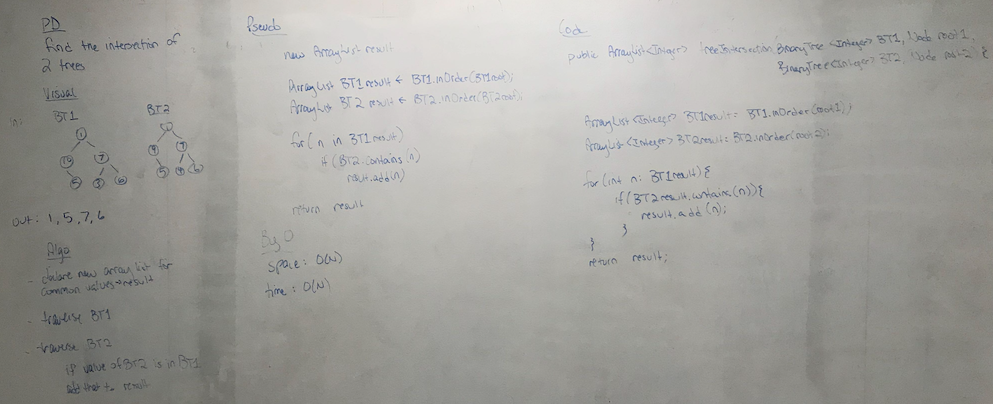 PD
find the intersection of
2 trees
Visual
in:
BT1
BT2
1
7
5
6
7
5
out: 1, 5, 7, 6
Algo
- declare new array list for
common values → result
- traverse BT1
- traverse BT2
if value of BT2 is in BT1
add that to result
Pseudo
new ArrayList result
ArrayList BT1result ← BT1.inOrder(BT1root);
ArrayList BT2 result ← BT2.inOrder(BT2root);
for(n in BT1result)
if (BT2.contains(n)
result.add(n)
return result
Big O
space: O(N)
time: O(N)
Code
public ArrayList<Integer> treeIntersection(BinaryTree<Integer> BT1, Node root1,
BinaryTree<Integer> BT2, Node root2) {
ArrayList<Integer> BT1result = BT1.inOrder(root1);
ArrayList<Integer> BT2result = BT2.inOrder(root2);
for(int n: BT1result){
if(BT2result.contains(n)){
result.add(n);
}
}
return result;